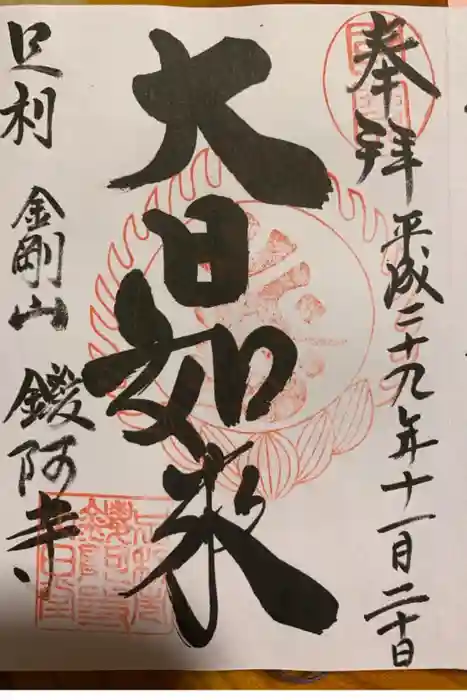 奉拝 平成二十九年十一月二十日
大日如来
足利 金剛山 鑁阿寺